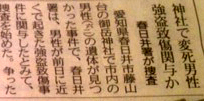 神社で変死男性
強盗致傷関与か
春日井署が捜査
愛知県春日井市藤山
台の御岳神社で市内の
男性（　）の遺体が見つ
かった事件で、春日井
署は、男性が前日に近
くで起きた強盗致傷事
件に関与したとみて、
捜査を始めた。争った